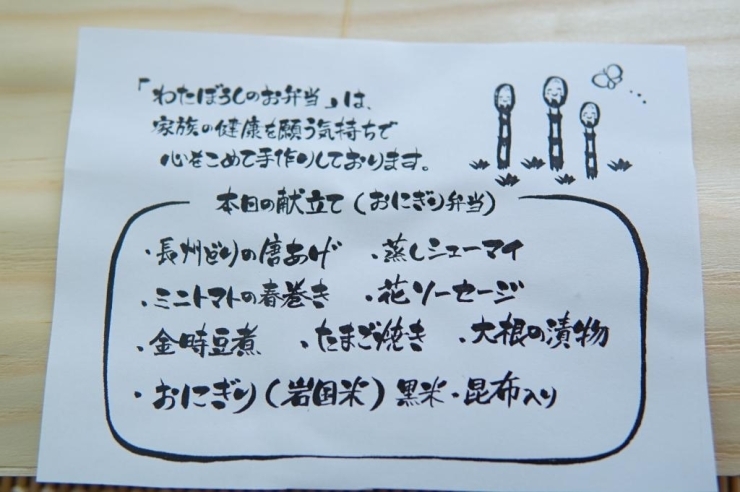 「わたぼうしのお弁当」は、
家族の健康を願う気持ちで
心をこめて手作りしております。
本日の献立て(おにぎり弁当)
・長州どりの唐あげ ・蒸しシューマイ
・ミニトマトの春巻き ・花ソーセージ
・金時豆煮 ・たまご焼き ・大根の漬物
・おにぎり(岩国米)黒米・昆布入り